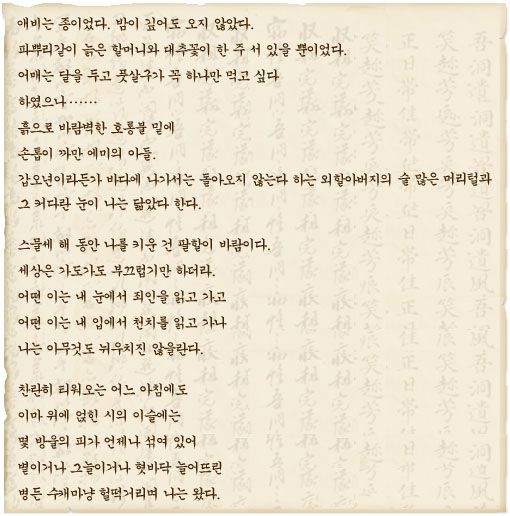 애비는 종이었다. 밤이 깊어도 오지 않았다.
파뿌리같이 늙은 할머니와 대추꽃이 한 주 서 있을 뿐이었다.
어매는 달을 두고 풋살구가 꼭 하나만 먹고 싶다
하였으나……
흙으로 바람벽한 호롱불 밑에
손톱이 까만 에미의 아들.
갑오년이라든가 바다에 나가서는 돌아오지 않는다 하는 외할아버지의 술 많은 머리털과
그 커다란 눈이 나는 닮았다 한다.

스물세 해 동안 나를 키운 건 팔할이 바람이다.
세상은 가도가도 부끄럽기만 하더라.
어떤 이는 내 눈에서 죄인을 읽고 가고
어떤 이는 내 입에서 천치를 읽고 가나
나는 아무것도 뉘우치진 않을란다.

찬란히 티워오는 어느 아침에도
이마 위에 얹힌 시의 이슬에는
몇 방울의 피가 언제나 섞여 있어
볕이거나 그늘이거나 혓바닥 늘어뜨린
병든 수캐마냥 헐떡거리며 나는 왔다.